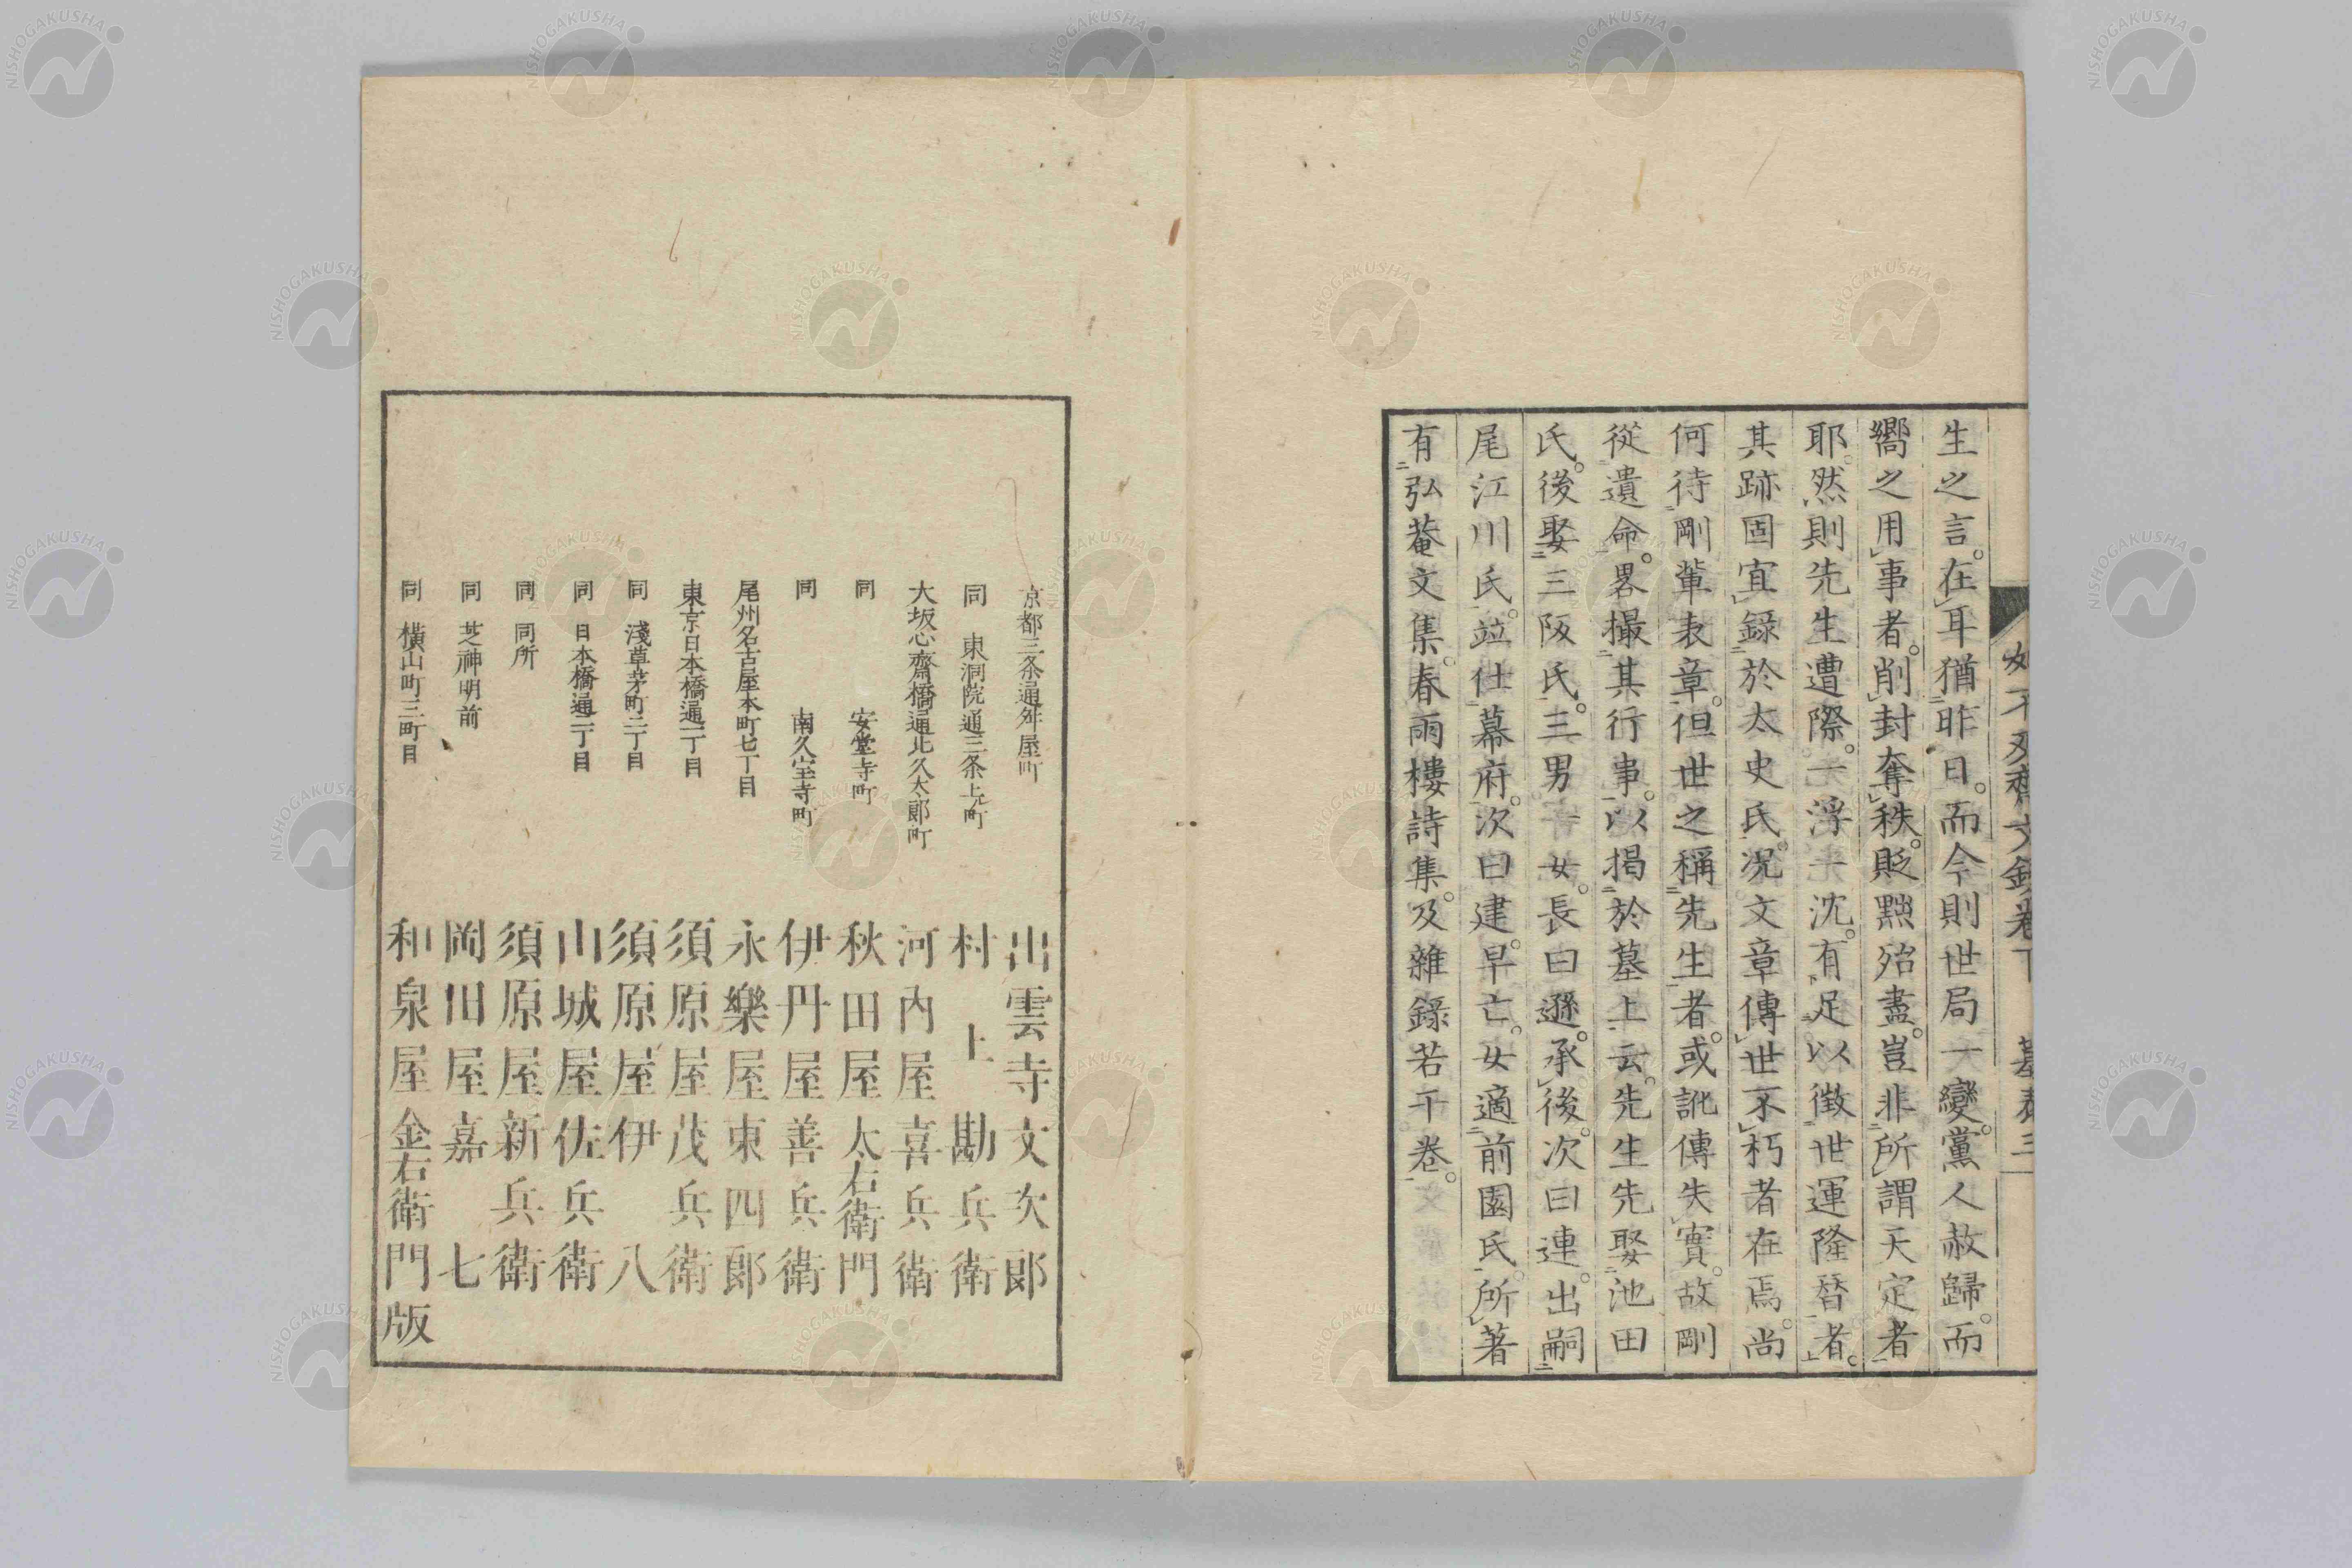 生之言。在耳猶昨日。而今則世局一變。黨人赦歸。而
嚮之用事者。削封奪秩。貶黜殆盡。豈非所謂天定者
耶。然則先生遭際。一浮一沈。有足以徵世運隆替者。
其跡固宜錄於太史氏。況文章傳世不朽者在焉。尚
何待剛輩表章。但世之稱先生者。或訛傳失實。故剛
從遺命。畧撮其行事。以揭於墓上云。先生先娶池田
氏。後娶三阪氏。三男一女。長曰遜。承後。次曰連。出嗣
尾江川氏。竝仕幕府。次曰建。早亡。女適前園氏。所著
有弘菴文集。春雨樓詩集。及雜錄若干卷。
京都三条通舛屋町 出雲寺文次郎
同 東洞院通三条上ル町 村上勘兵衛
大坂心齋橋通北久太郎町 河内屋喜兵衛
同 安堂寺町 秋田屋太右衛門
同 南久宝寺町 伊丹屋善兵衛
尾州名古屋本町七丁目 永樂屋東四郎
東京日本橋通一丁目 須原屋茂兵衛
同 淺草茅町二丁目 須原屋伊八
同 日本橋通二丁目 山城屋佐兵衛
同 同所 須原屋新兵衛
同 芝神明前 岡田屋嘉七
同 横山町三町目 和泉屋金右衛門版
NISHOGAKUSHA